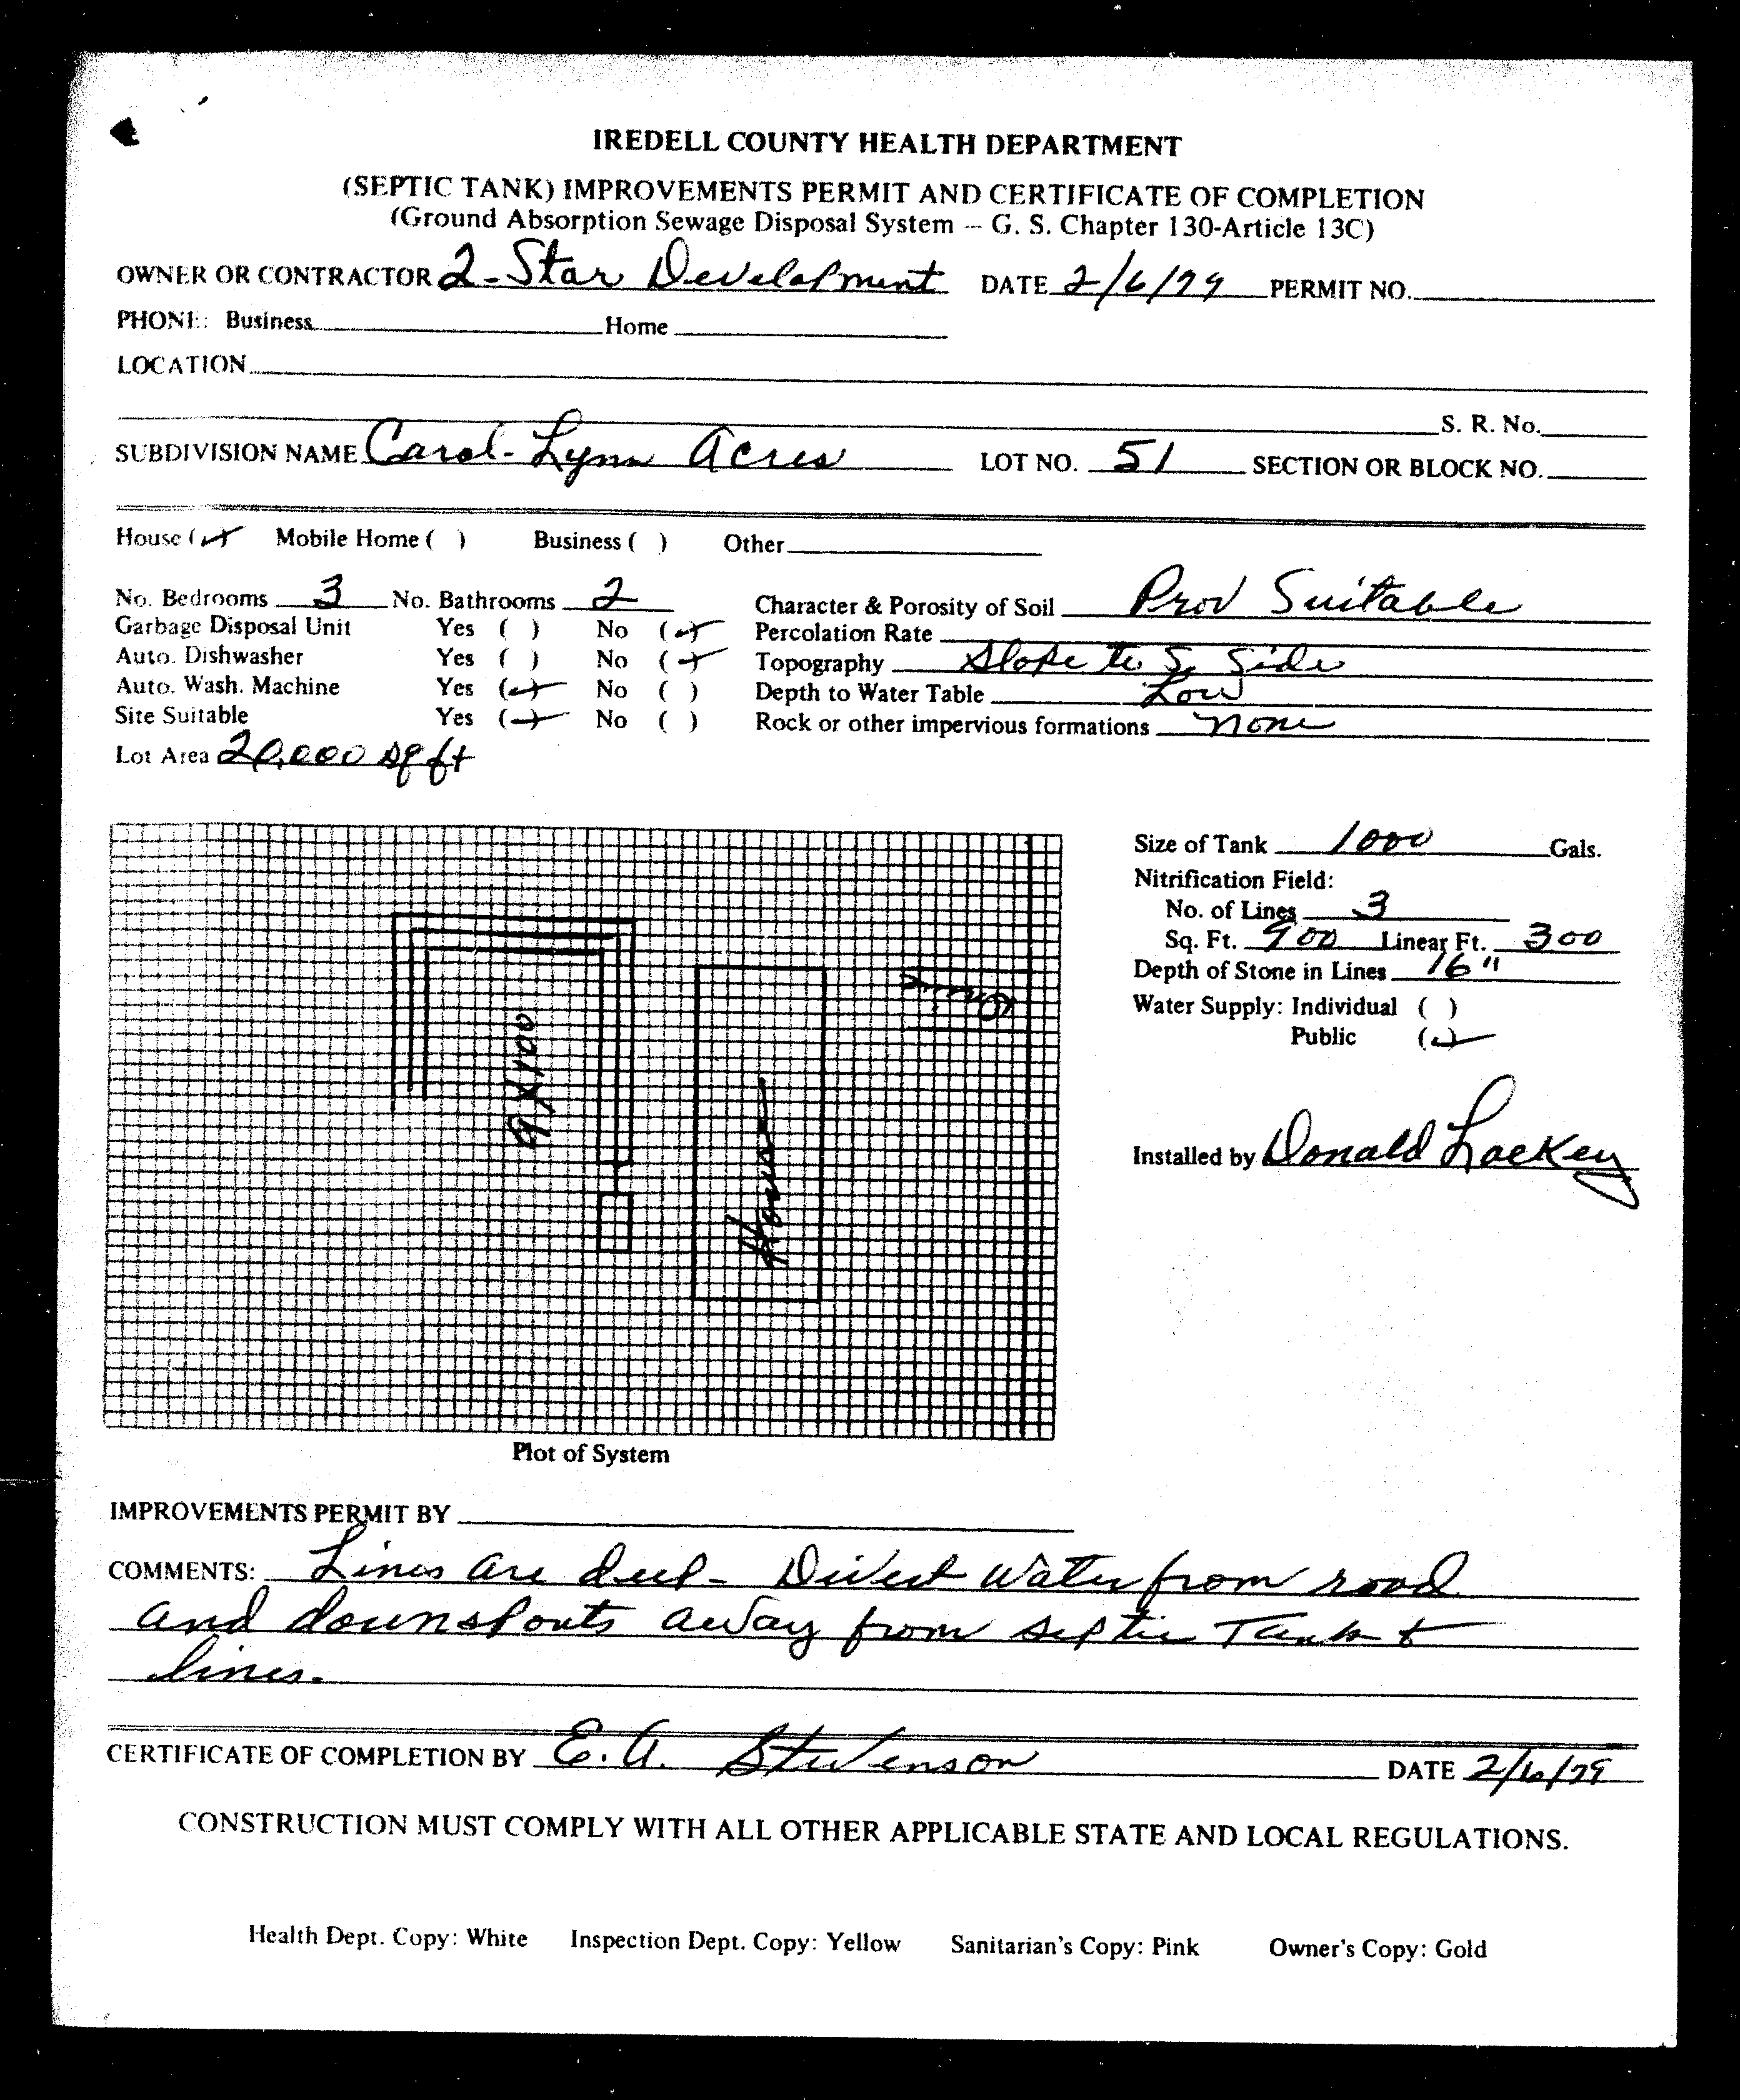 IREDELL COUNTY HEALTH DEPARTMENT
(SEPTIC TANK) IMPROVEMENTS PERMIT AND CERTIFICATE OF COMPLETION
(Ground Absorption Sewage Disposal System -- G. S. Chapter 130-Article 13C)
OWNER OR CONTRACTOR 2-Star Development DATE 2/6/79 PERMIT NO.
PHONE: Business Home
LOCATION
S. R. No.
SUBDIVISION NAME Carol-Lynn Acres LOT NO. 51 SECTION OR BLOCK NO.
House (✓) Mobile Home ( ) Business ( ) Other
No. Bedrooms 3 No. Bathrooms 2 Character & Porosity of Soil Prov Suitable
Garbage Disposal Unit Yes ( ) No (✓) Percolation Rate
Auto. Dishwasher Yes ( ) No (✓) Topography Slope to S. Side
Auto. Wash. Machine Yes (✓) No ( ) Depth to Water Table Low
Site Suitable Yes (✓) No ( ) Rock or other impervious formations none
Lot Area 20,000 sq ft
Size of Tank 1000 Gals.
Nitrification Field:
No. of Lines 3
Sq. Ft. 900 Linear Ft. 300
Depth of Stone in Lines 16"
Water Supply: Individual ( )
Public (✓)
Installed by Donald Lackey
House
Plot of System
IMPROVEMENTS PERMIT BY
COMMENTS: Lines are deep - Divert water from road
and downspouts away from septic Tank &
lines.
CERTIFICATE OF COMPLETION BY E. A. Stevenson DATE 2/6/79
CONSTRUCTION MUST COMPLY WITH ALL OTHER APPLICABLE STATE AND LOCAL REGULATIONS.
Health Dept. Copy: White Inspection Dept. Copy: Yellow Sanitarian's Copy: Pink Owner's Copy: Gold